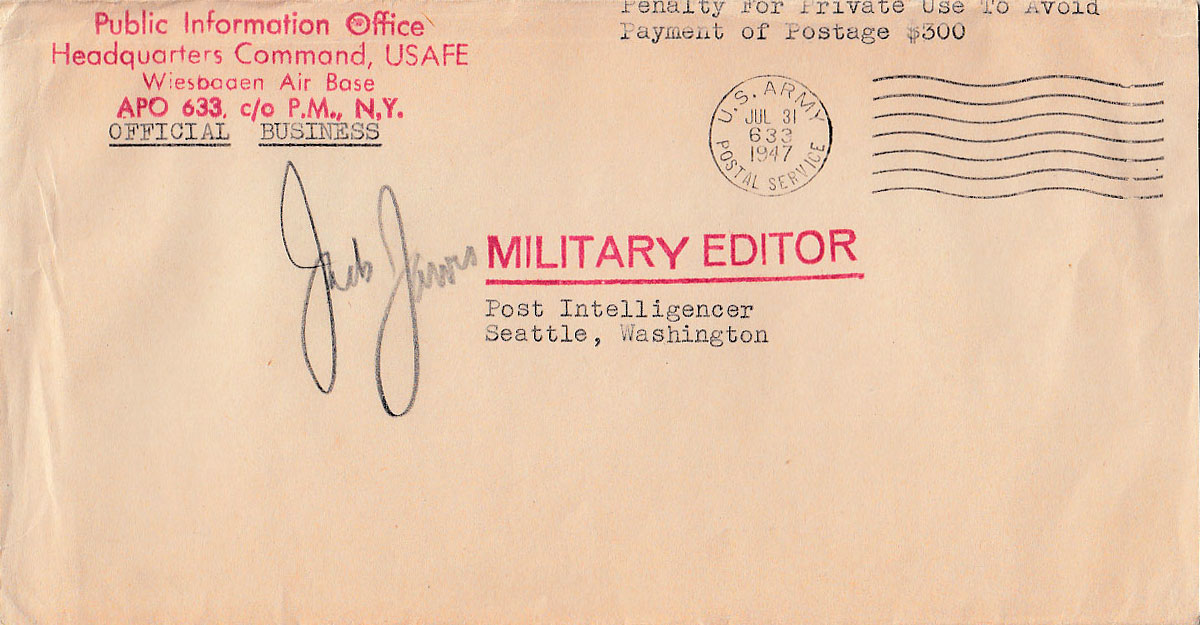 Public Information Office
Headquarters Command, USAFE
Wiesbaden Air Base
APO 633, c/o P.M., N.Y.
OFFICIAL BUSINESS
Penalty For Private Use To Avoid
Payment of Postage $300
U.S. ARMY
JUL 31
633
1947
POSTAL SERVICE
MILITARY EDITOR
Post Intelligencer
Seattle, Washington